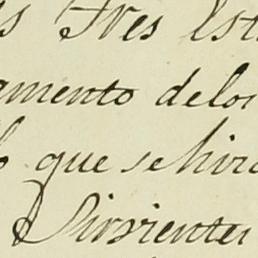 s Tres Est
amento delos
que se hiro
Sirvientes